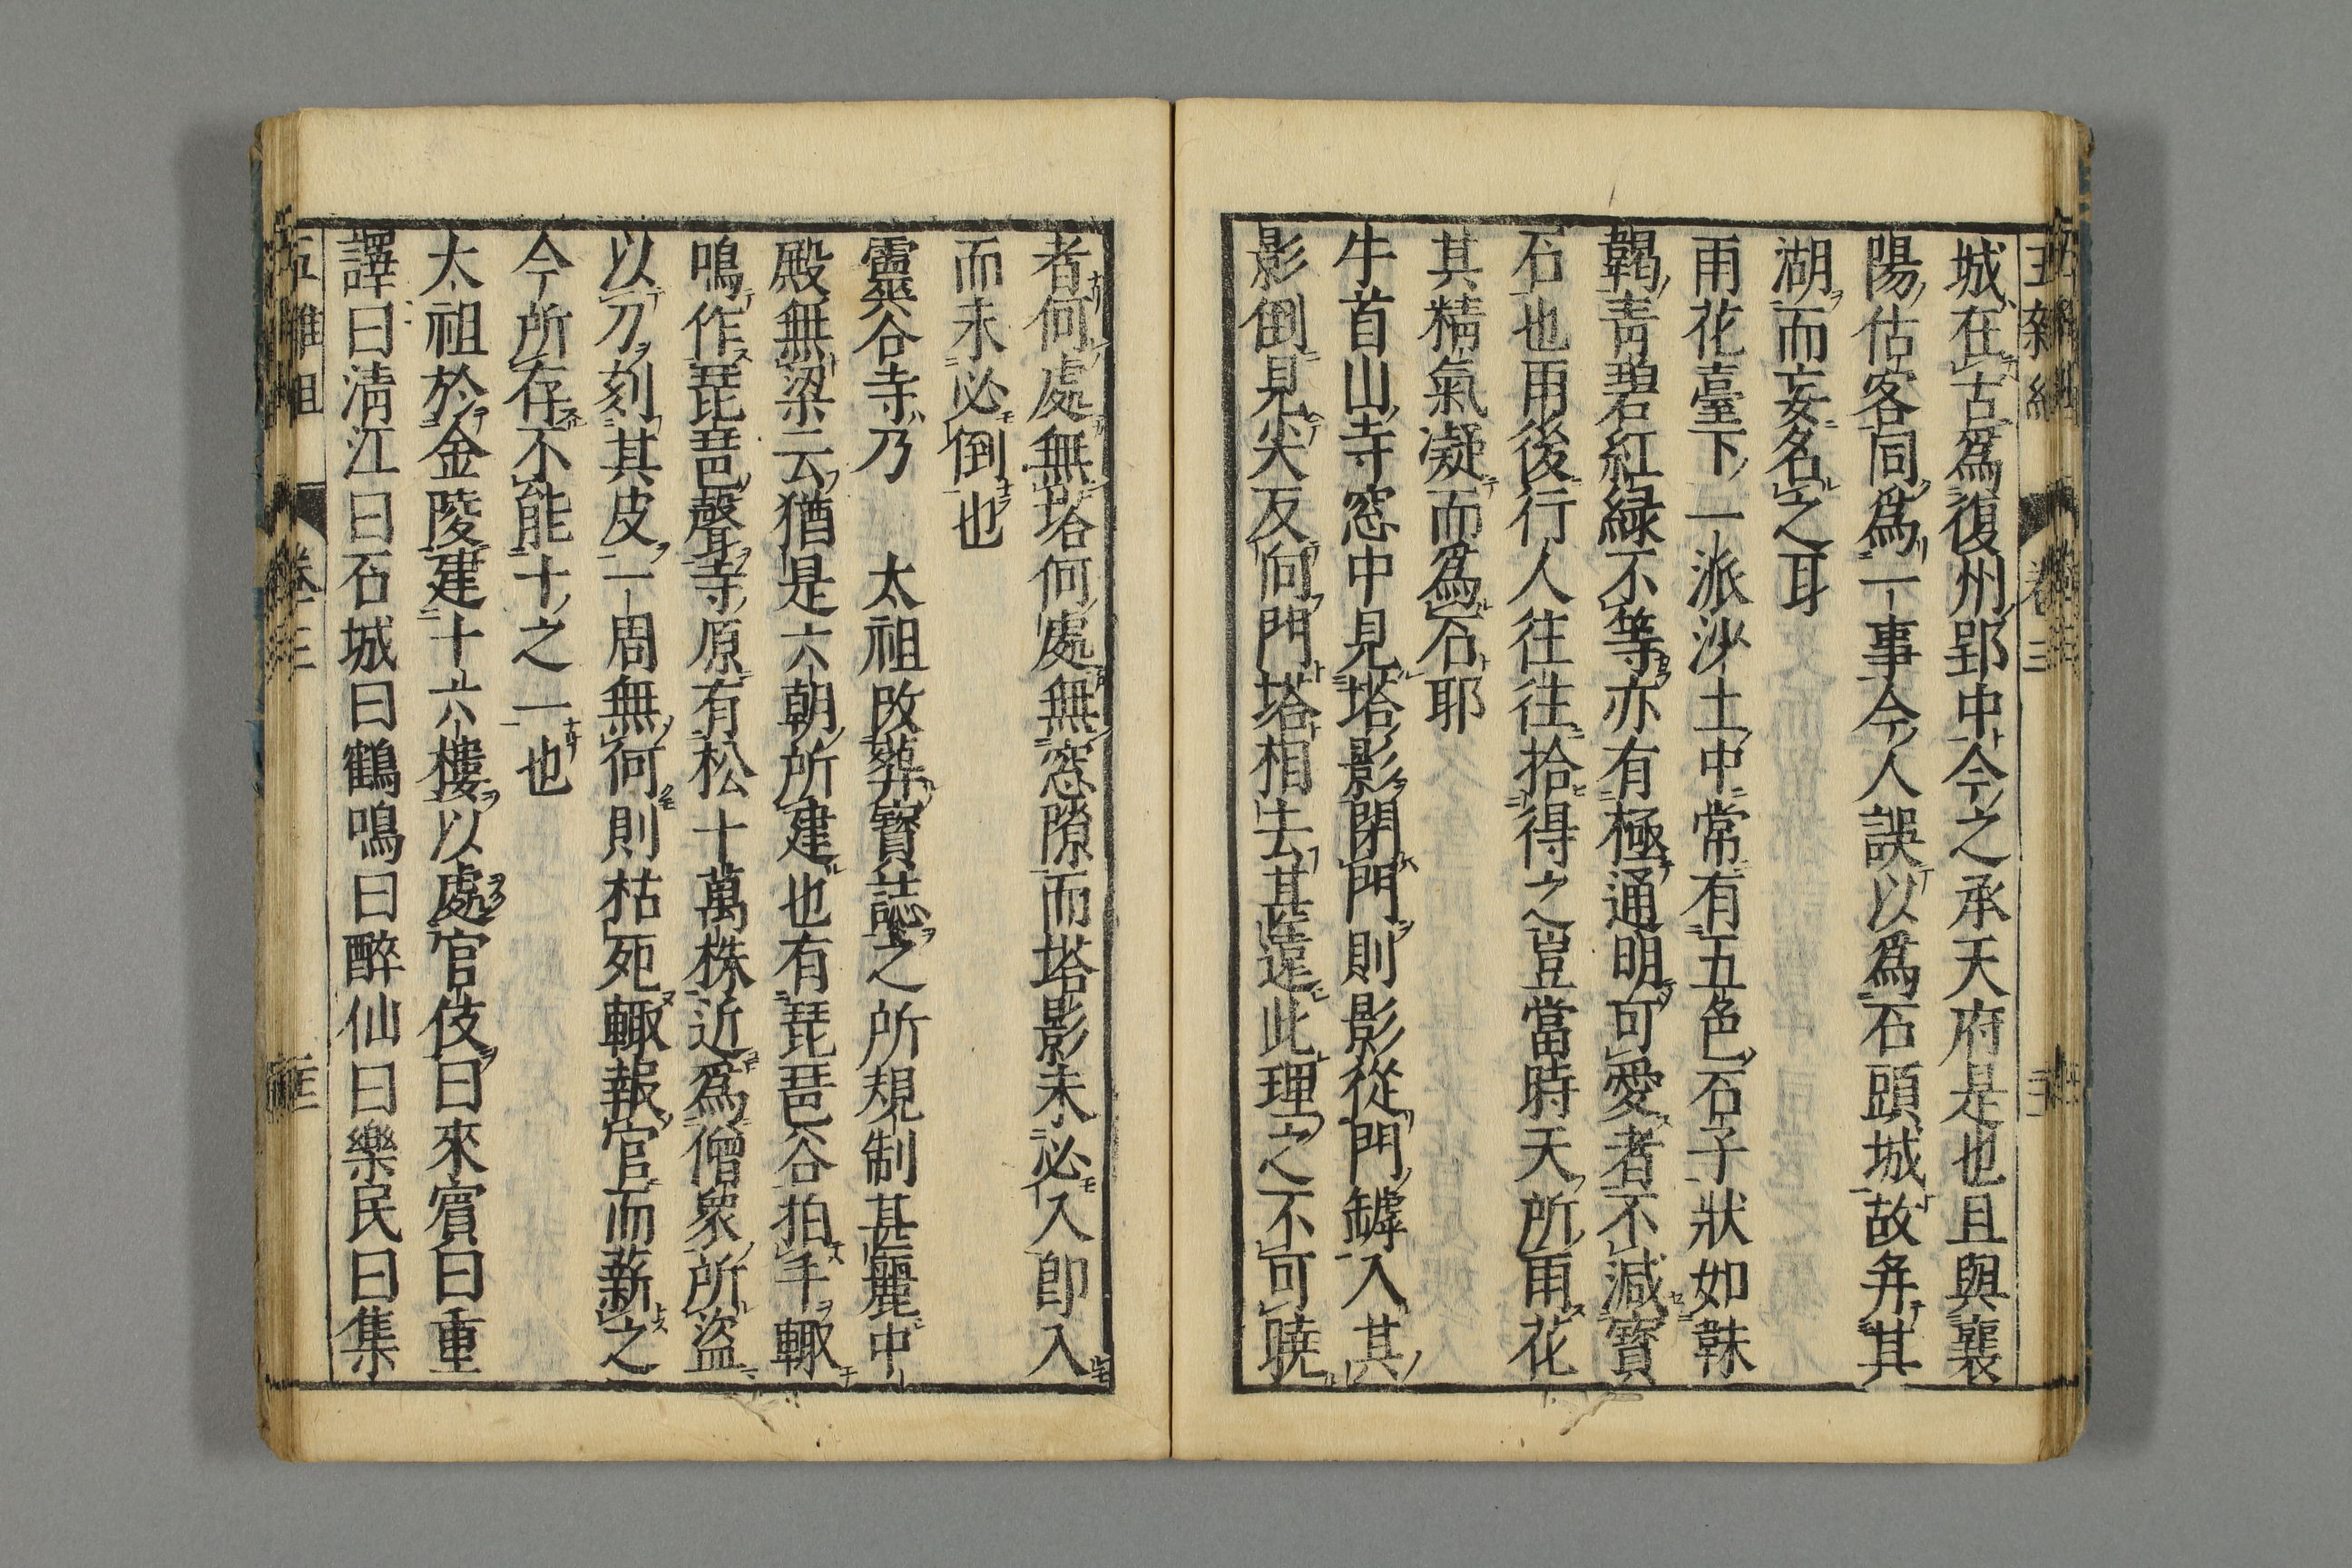 城在古爲復州郢中今之承天府是也且與襄
陽估客同爲一事今人誤以爲石頭城故并其
湖而妄名之耳
雨花臺下一派沙土中常有五色石子狀如靺
鞨青碧紅綠不等亦有極通明可愛者不減寶
石也雨後行人往往拾得之豈當時天所雨花
其精氣凝而爲石耶
牛首山寺窓中見塔影閉門則影從門罅入其
影倒見尖反向門塔相去甚遠此理之不可曉
者何處無塔何處無窓隙而塔影未必入即入
而未必倒也
靈谷寺乃 太祖改葬寶誌之所規制甚麗中
殿無梁云猶是六朝所建也有琵琶谷拍手輙
鳴作琵琶聲寺原有松十萬株近爲僧衆所盜
以刀刻其皮一周無何則枯死輙報官而薪之
今所存不能十之一也
太祖於金陵建十六樓以處官伎曰來賓曰重
譯曰清江曰石城曰鶴鳴曰醉仙曰樂民曰集
五雜組 卷三